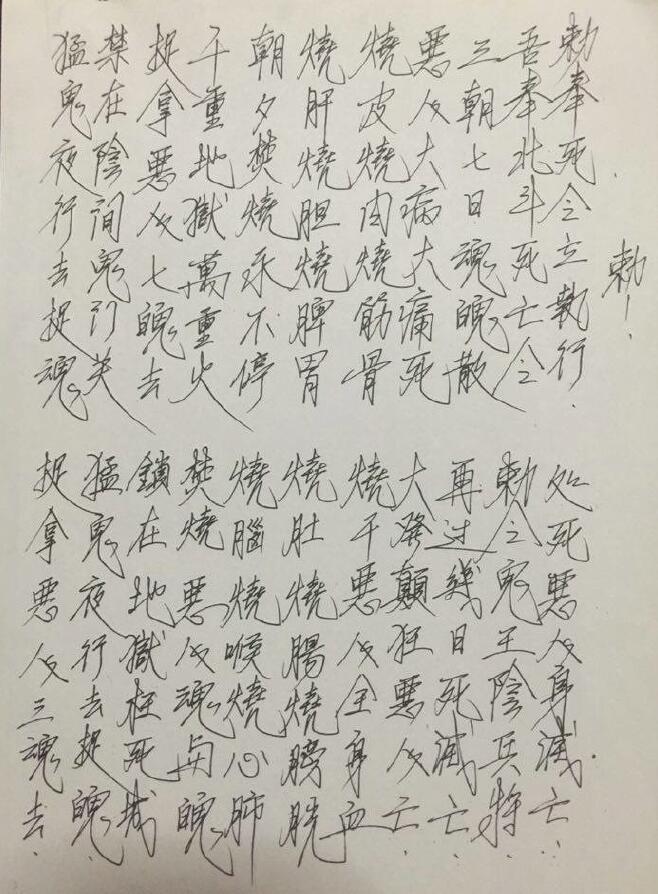 猛鬼夜行去捉魂
捉拿惡人三魂去
禁在陰間鬼门关
猛鬼夜行去捉魄
捉拿惡人七魄去
鎖在地獄枉死城
千重地獄萬重火
焚燒惡人魂与魄
朝夕焚燒永不停
燒腦燒喉燒心肺
燒肝燒胆燒脾胃
燒肚燒腸燒膀胱
燒皮燒肉燒筋骨
燒干惡人全身血
惡人大病大痛死
大發顛狂惡人亡
三朝七日魂魄散
再过幾日死滅亡
吾奉北斗死亡令
勅令鬼王陰兵将
勅奉死令立執行
处死惡人身滅亡
勅!